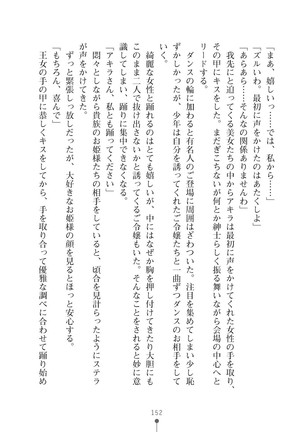 「まぁ、嬉しい……では、私から……」
「ズルいわ。最初に声をかけたのはあたくしよ」
「あらあら……そんなの関係ありませんわ」
　我先にと迫ってくる美女たちの中からアキラは最初に声をかけてくれた女性の手を取り、
その甲にキスをした。まだぎこちないが何とか紳士らしく振る舞いながら会場の中心へと
リードする。
　ダンスの輪に加わると有名人のご登場に周囲はざわついた。注目を集めてしまい少し恥
ずかしかったが、少年は自分を誘ってくれたご令嬢たちと一曲ずつダンスのお相手をして
いく。
　綺麗な女性と踊れるのはとても嬉しいが、中にはなぜか胸を押し付けてきたり大胆にも
このまま二人で抜け出さないかと誘ってくるご令嬢もいた。そんなことをされると妙に意
識してしまい、踊りに集中できなくなる。
「アキラさん、私とも踊ってください」
　悶々としながら貴族のお姫様たちの相手をしていると、頃合を見計らったようにステラ
が声をかけてきた。
　ずっと緊張しっ放しだったが、大好きなお姫様の顔を見るとほっと安心する。
「もちろん、喜んで」
　王女の手の甲に恭しくキスをしてから、手を取り合って優雅な調べに合わせて踊り始め
152